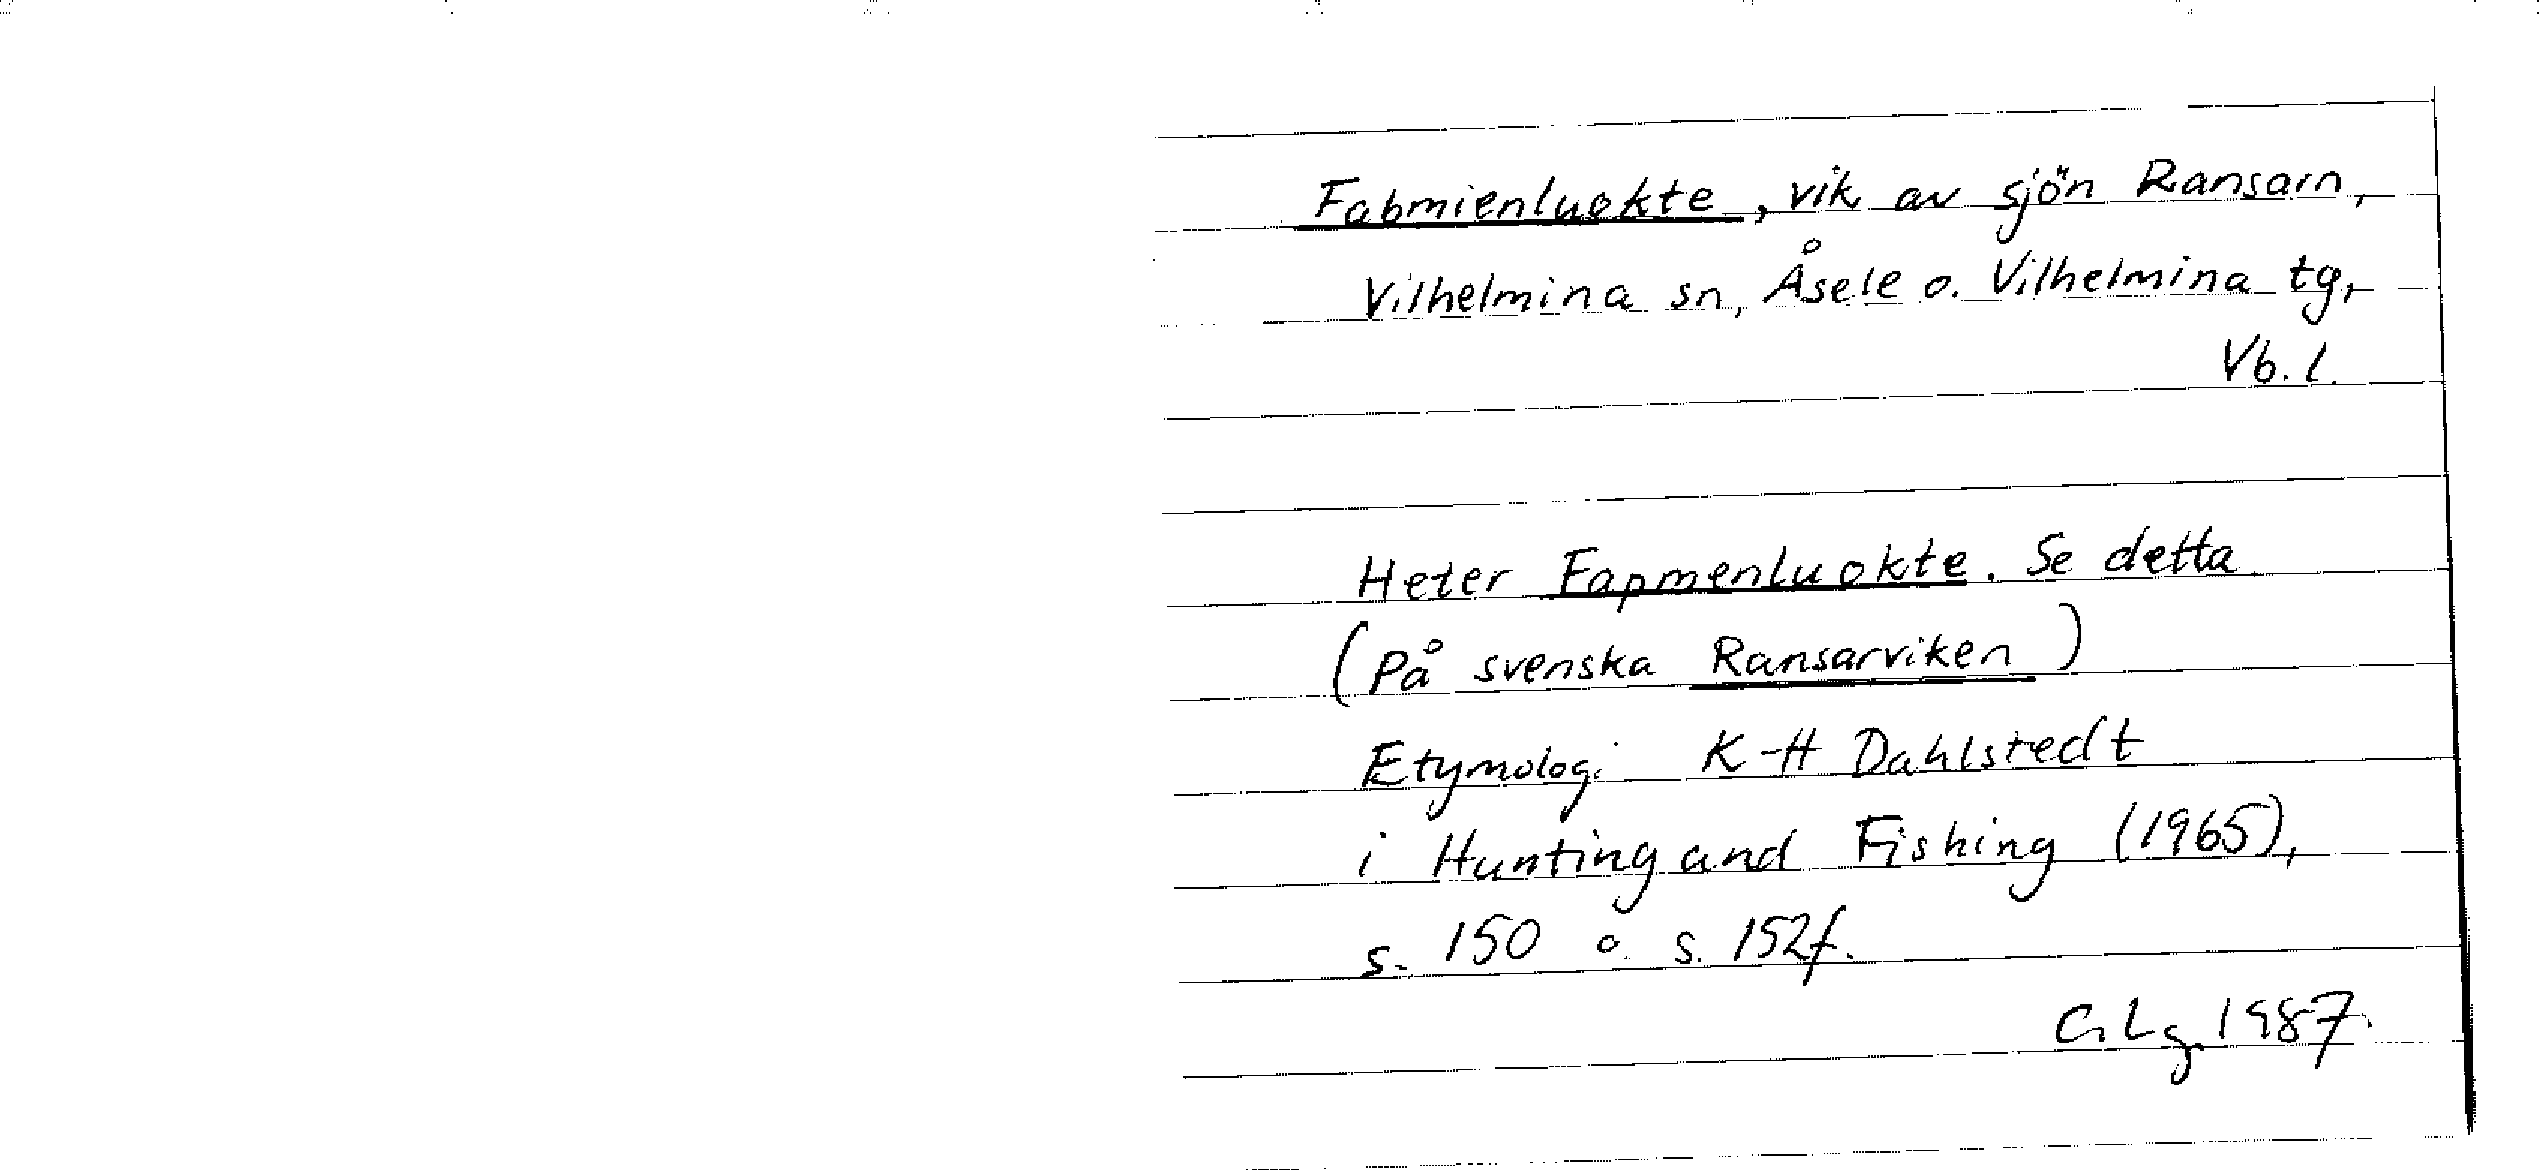 Fabmienluokte, vik av sjön Ransarn,
Vilhelmina sn, Åsele o. Vilhelmina tg,
Vb. l.
Heter Fapmenluokte. Se detta
(På svenska Ransarviken)
Etymologi K-H Dahlstedt
i Hunting and Fishing (1965),
s. 150 o. s. 152f.
C. Lg. 1987.